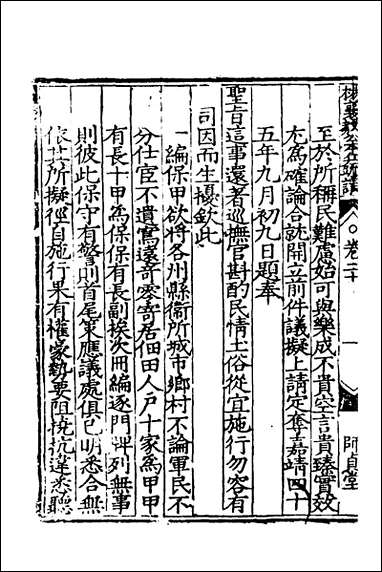 至於所稱民難慮始可與樂成不貴空言貴臻實效
尤為確論合就開立前件議擬上請定奪嘉靖四十
五年九月初九日題奉
聖旨這事還著巡撫官斟酌民情土俗從宜施行勿容有
司因而生擾欽此
一編保甲欲將各州縣衞所城市鄉村不論軍民不
分仕宦不遺寫遠寄零寄居佃田人戶十家為甲甲
有長十甲為保保有長副挨次冊編逐門牌列無事
則彼此保守有警則首尾策應議處俱已明悉合無
依其所擬徑自施行果有權豪勢要阻撓抗違悉聽
卷二十
一
師貞堂